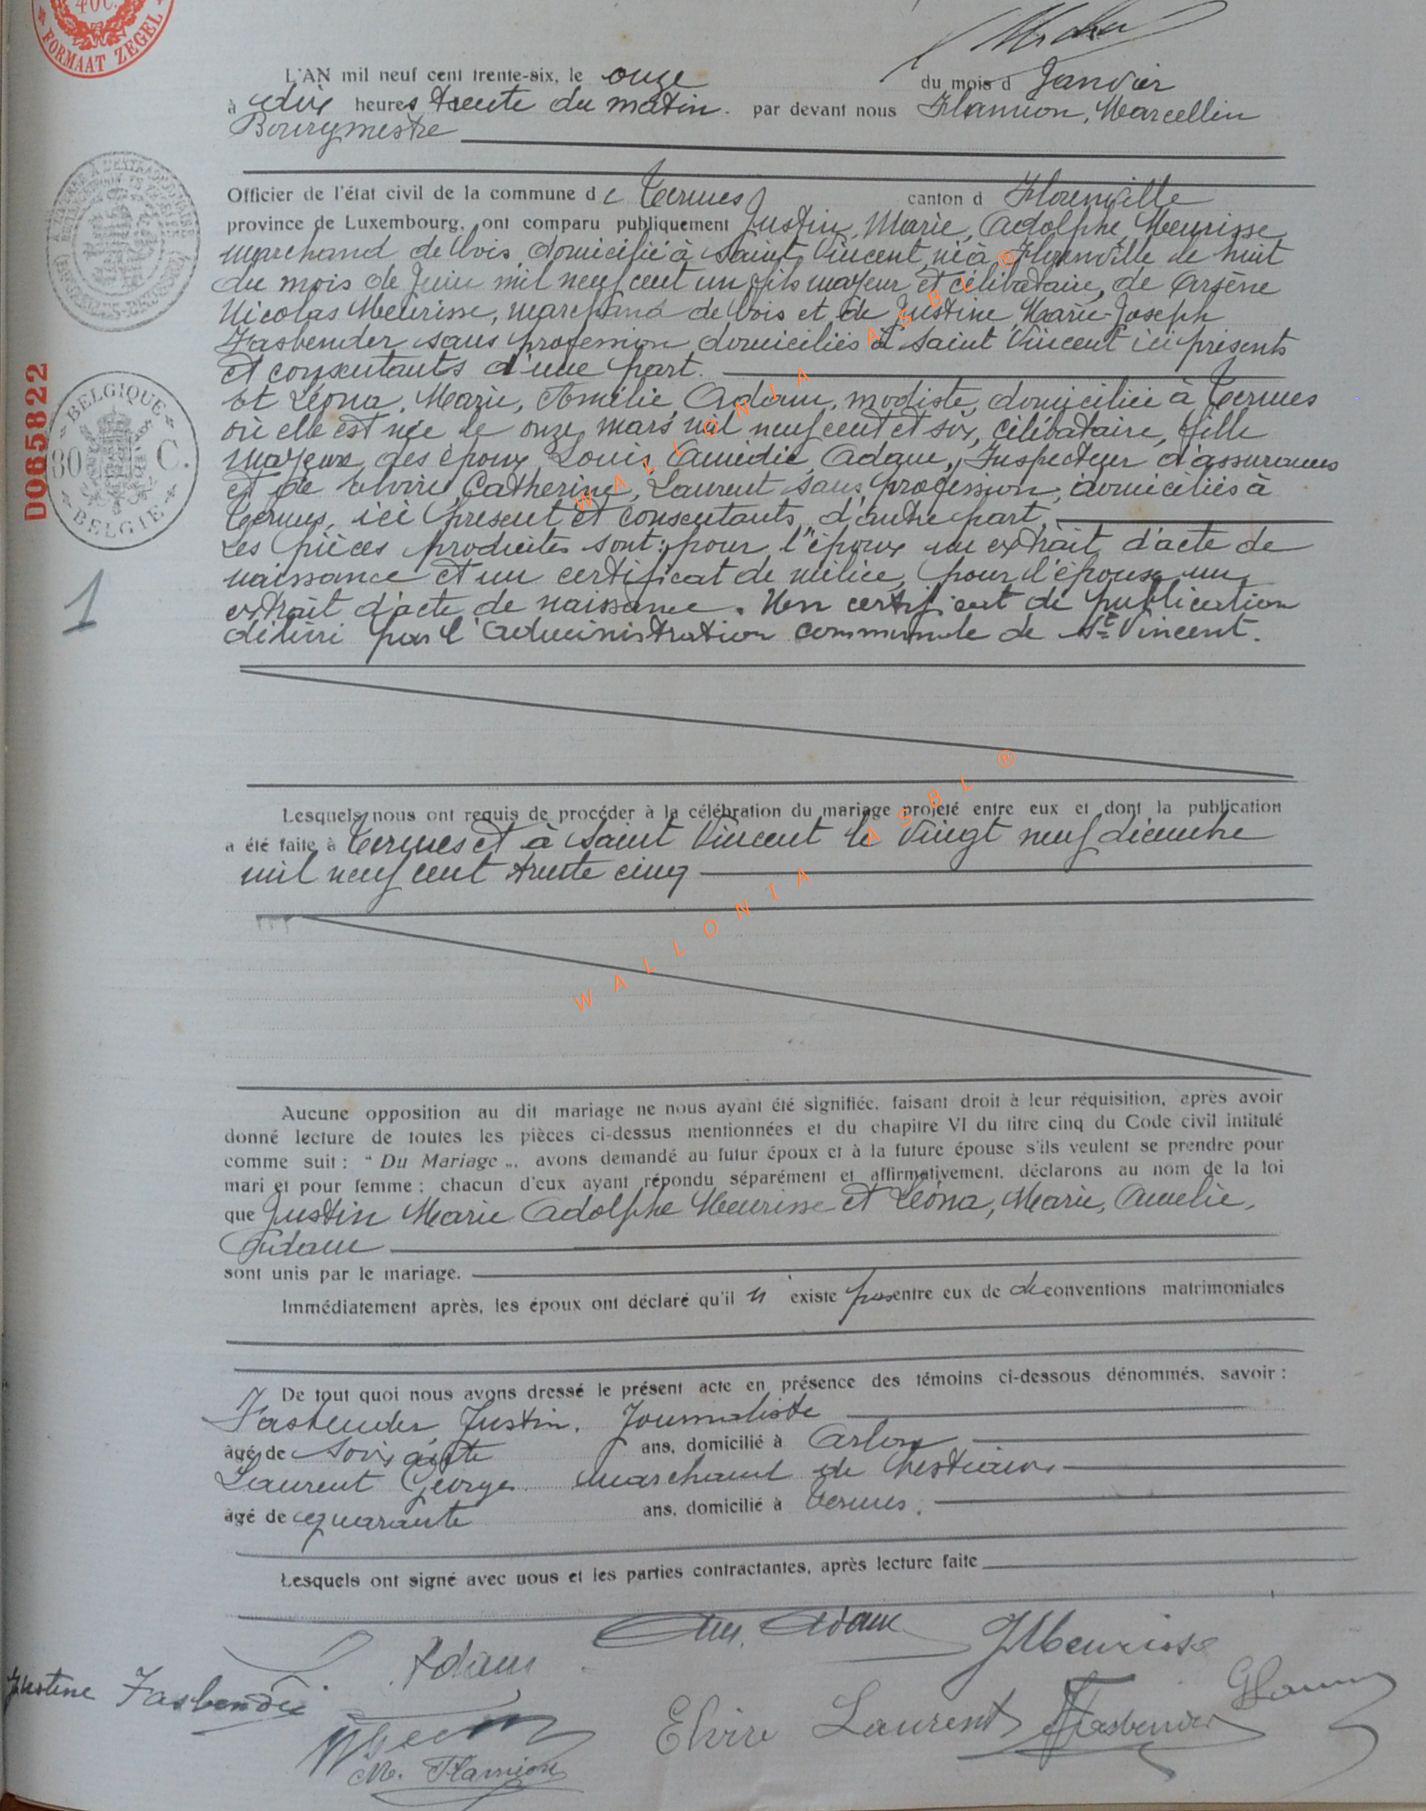 40C.
FORMAAT ZEGEL
L'AN mil neuf cent trente-six, le onze du mois d Janvier
à dix heures trente du matin. par devant nous Flamion, Marcellin
Bourgmestre
Officier de l'état civil de la commune de Termes canton d Florenville
province de Luxembourg, ont comparu publiquement Justin, Marie, Adolphe Meurisse
marchand de bois, domicilié à Saint Vincent, né à Florenville le huit
du mois de Juin mil neuf cent un fils majeur et célibataire, de Arsène
Nicolas Meurisse, marchand de bois et de Justine Marie-Joseph
Fasbender sans profession, domiciliés à Saint Vincent ici présents
et consentants d'une part.
Et Léona, Marie, Amélie, Adam, modiste, domiciliée à Termes
où elle est née le onze mars mil neuf cent et six, célibataire, fille
majeure des époux Louis Amédée Adam, Inspecteur d'assurances
et de Elvire, Catherine, Laurent sans profession, domiciliés à
Termes, ici présent et consentants, d'autre part.
Les pièces produites sont: pour l'époux un extrait d'acte de
naissance et un certificat de milice, pour l'épouse un
extrait d'acte de naissance. Un certificat de publication
délivré par l'administration communale de St Vincent.
BELGIQUE
80 C.
BELGIE
D065822
1
Lesquels nous ont requis de procéder à la célébration du mariage projeté entre eux et dont la publication
a été faite à Termes et à Saint Vincent le vingt neuf décembre
mil neuf cent trente cinq
WALLONIA ASBL ®
WALLONIA ASBL ®
Aucune opposition au dit mariage ne nous ayant été signifiée, faisant droit à leur réquisition, après avoir
donné lecture de toutes les pièces ci-dessus mentionnées et du chapitre VI du titre cinq du Code civil intitulé
comme suit : " Du Mariage ", avons demandé au futur époux et à la future épouse s'ils veulent se prendre pour
mari et pour femme ; chacun d'eux ayant répondu séparément et affirmativement, déclarons au nom de la loi
que Justin Marie Adolphe Meurisse et Léona, Marie, Amélie,
Adam
sont unis par le mariage.
Immédiatement après, les époux ont déclaré qu'il n' existe pas entre eux de de conventions matrimoniales
De tout quoi nous avons dressé le présent acte en présence des témoins ci-dessous dénommés, savoir :
Fasbender, Justin, Journaliste
âgé de soixante ans, domicilié à Arlon
Laurent Georges marchand de bestiaux
âgé de quarante ans, domicilié à Termes.
Lesquels ont signé avec nous et les parties contractantes, après lecture faite
Adam Adam JMeurisse
Justine Fasbender
Elvire Laurent Fasbender GLaurent
M. Flamion